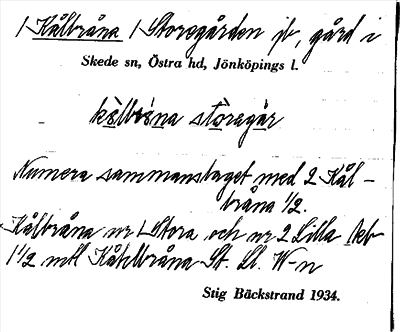 / Kålbråna / Storegården jb, gård i
Skede sn, Östra hd, Jönköpings l.
storegår
Numera sammanslaget med 2 Kål-
bråna 1/2.
Kålbråna nr 1 Stora och nr 2 Lilla Jeb
1 1/2 mtl Kåhlbråna St. Ll. W-n
Stig Bäckstrand 1934.